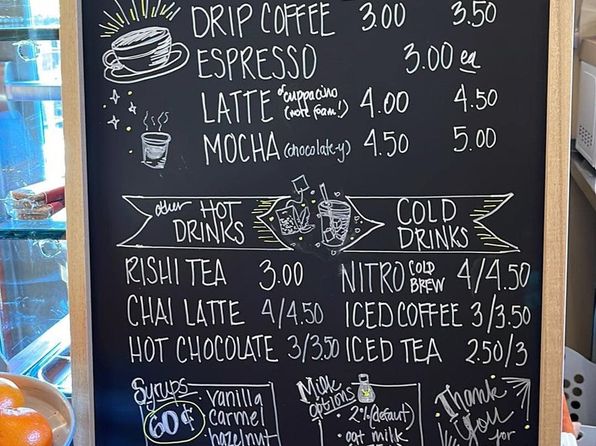 DRIP COFFEE 3.00 3.50
ESPRESSO 3.00 ea
LATTE or cuppacino (more foam!) 4.00 4.50
MOCHA (chocolate-y) 4.50 5.00
other HOT DRINKS
COLD DRINKS
RISHI TEA 3.00
CHAI LATTE 4/4.50
HOT CHOCOLATE 3/3.50
NITRO COLD BREW 4/4.50
ICED COFFEE 3/3.50
ICED TEA 2.50/3
Syrups
60¢
vanilla
carmel
hazelnut
Milk options
• 2% (defaut)
• oat milk
Thank
You
for